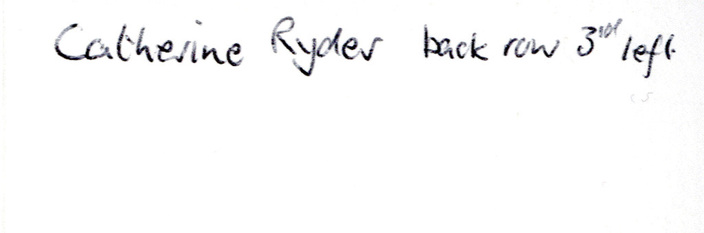 Catherine Ryder back row 3rd left